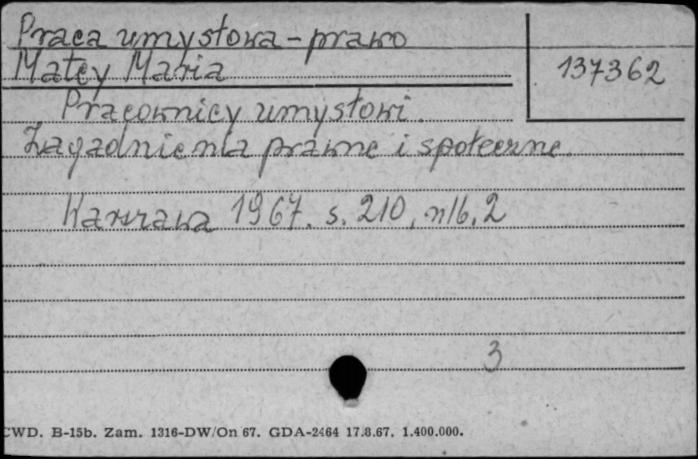 Praca umysłowa - prawo
Matey Maria
137362
Pracownicy umysłowi.
Zagadnienia prawne i społeczne.
Warszawa 1967. s. 210, nlb. 2
3
CWD. B-15b. Zam. 1316-DW/On 67. GDA-2464 17.8.67. 1.400.000.